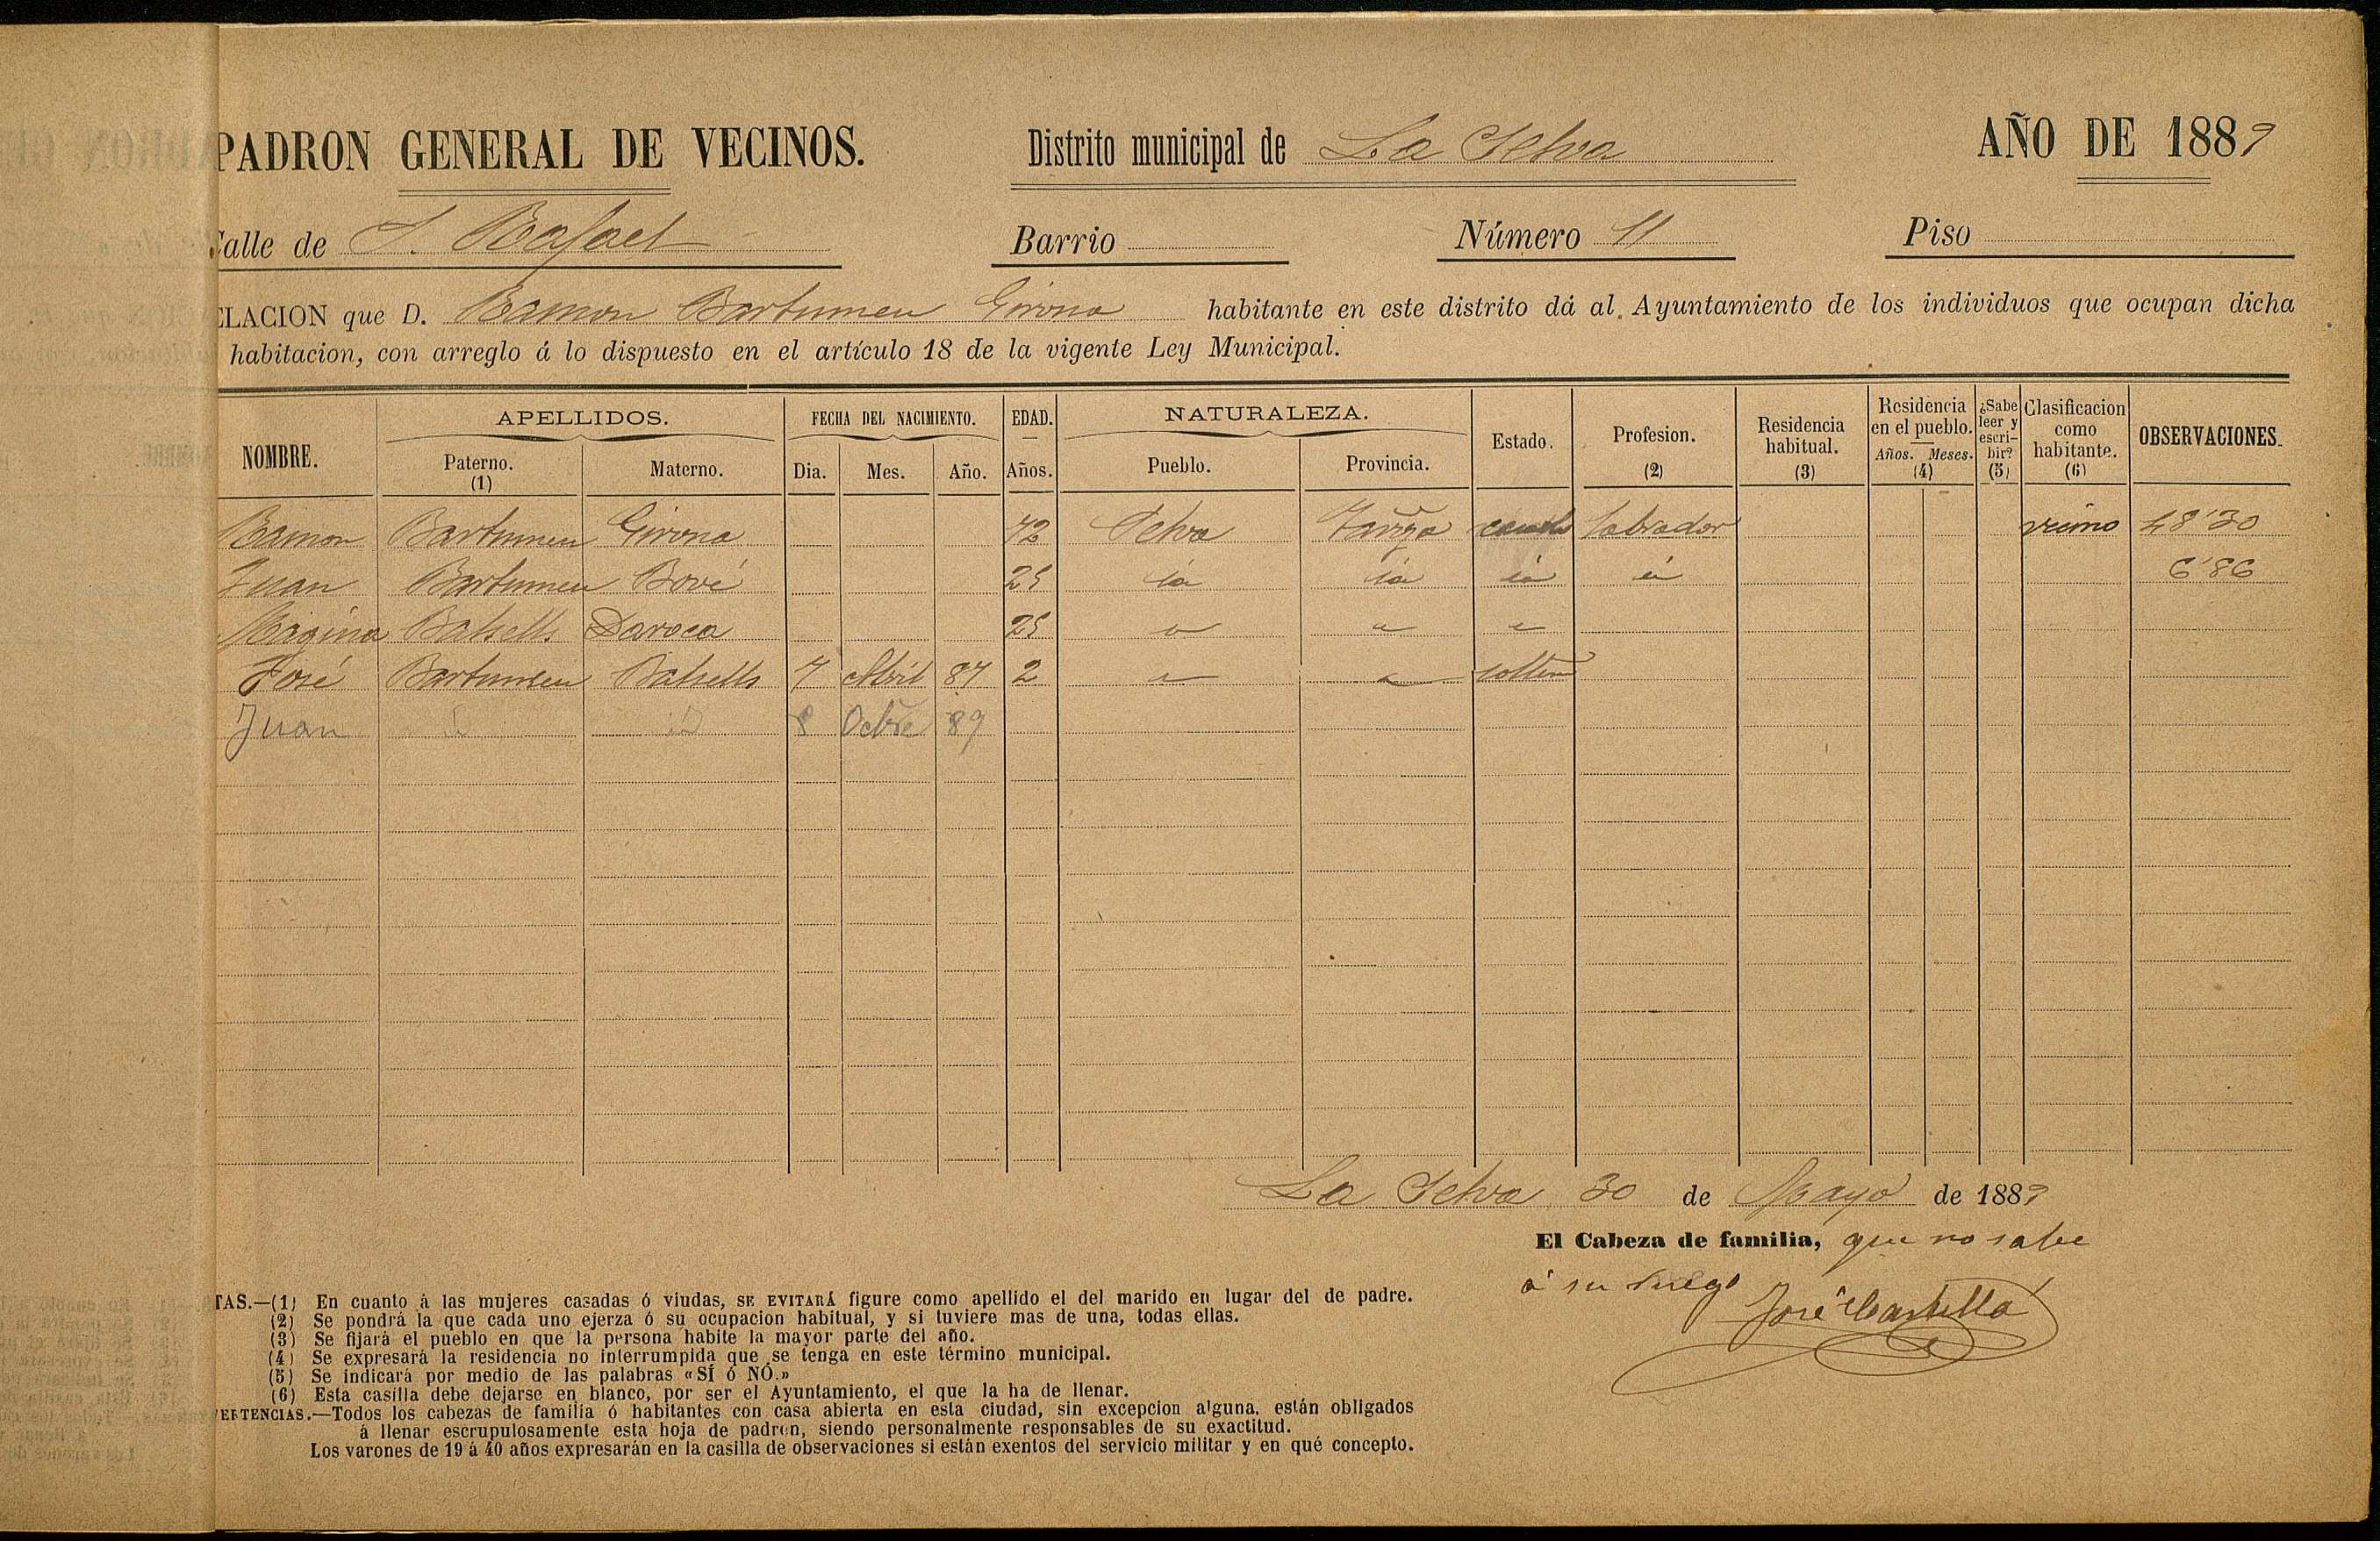 PADRON GENERAL DE VECINOS. Distrito municipal de La Selva AÑO DE 1889
Calle de S. Rafael Barrio Número 11 Piso
ELACION que D. Ramon Bartumeu Girona habitante en este distrito dá al Ayuntamiento de los individuos que ocupan dicha
habitacion, con arreglo á lo dispuesto en el artículo 18 de la vigente Ley Municipal.
NOMBRE. APELLIDOS. Paterno. (1) Materno. FECHA DEL NACIMIENTO. Dia. Mes. Año. EDAD. Años. NATURALEZA. Pueblo. Provincia. Estado. Profesion. (2) Residencia habitual. (3) Residencia en el pueblo. Años. Meses. (4) ¿Sabe leer y escri- bir? (5) Clasificacion como habitante. (6) OBSERVACIONES.
Ramon Bartumeu Girona 72 Selva casado labrador vecino 48'30
Juan Bartumeu Bové 25 id id id id 6'86
Magina Balsells Daroca 25 " " "
José Bartumeu Balsells 7 Abril 87 2 " " soltero
Juan id id 8 Octbre 89
La Selva 30 de Mayo de 1889
El Cabeza de familia, que no sabe
á su ruego
José
TAS.—(1) En cuanto á las mujeres casadas ó viudas, SE EVITARÁ figure como apellido el del marido en lugar del de padre.
(2) Se pondrá la que cada uno ejerza ó su ocupacion habitual, y si tuviere mas de una, todas ellas.
(3) Se fijará el pueblo en que la persona habite la mayor parte del año.
(4) Se expresará la residencia no interrumpida que se tenga en este término municipal.
(5) Se indicará por medio de las palabras «SÍ ó NÓ.»
(6) Esta casilla debe dejarse en blanco, por ser el Ayuntamiento, el que la ha de llenar.
VERTENCIAS.—Todos los cabezas de familia ó habitantes con casa abierta en esta ciudad, sin excepcion alguna, están obligados
á llenar escrupulosamente esta hoja de padron, siendo personalmente responsables de su exactitud.
Los varones de 19 á 40 años expresarán en la casilla de observaciones si están exentos del servicio militar y en qué concepto.